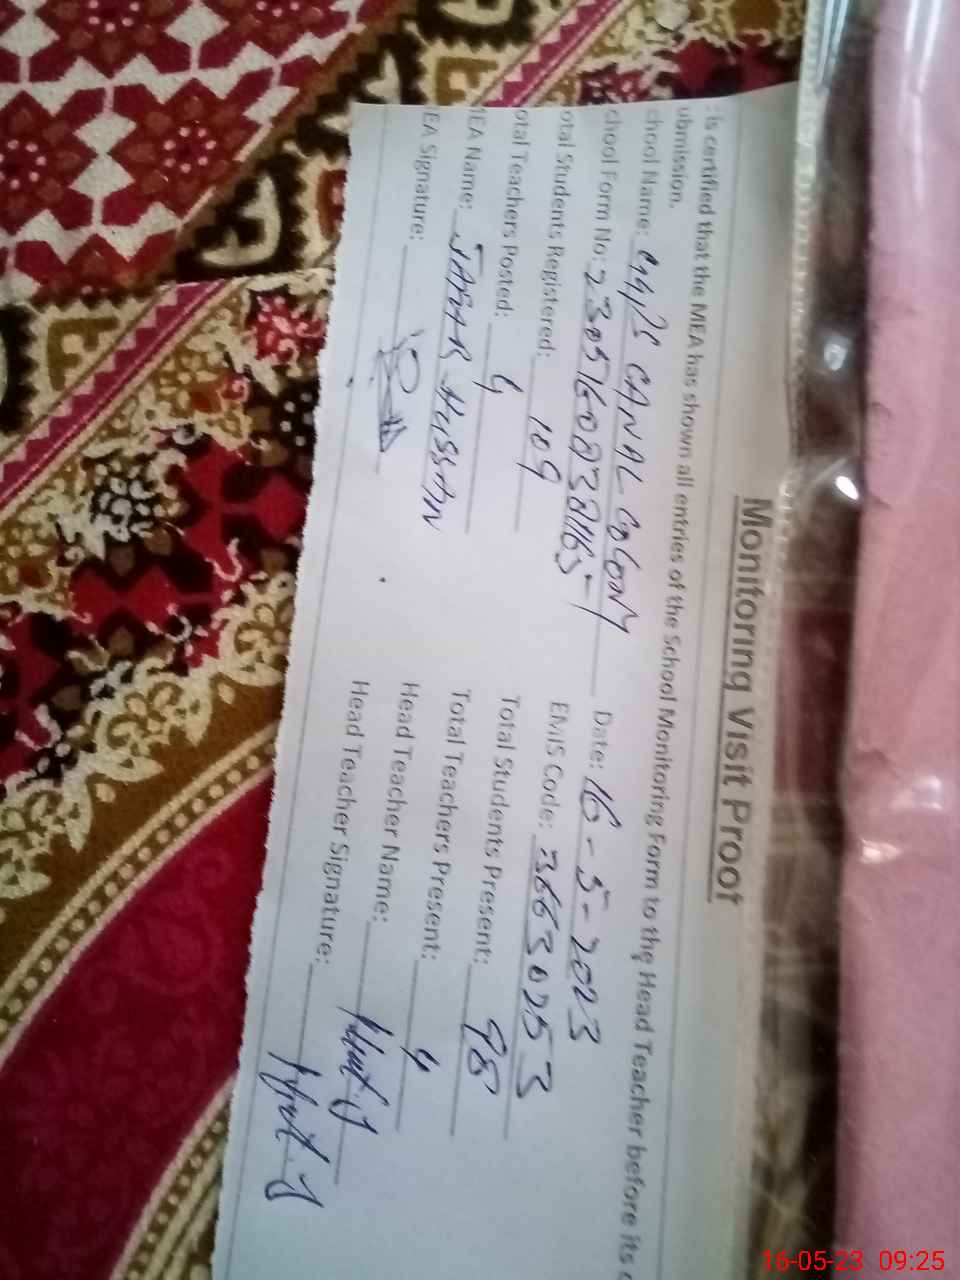 Monitoring Visit Proof
is certified that the MEA has shown all entries of the School Monitoring Form to the Head Teacher before its
ubmission.
chool Name: CANAL COLONY
Date: 16-5-2023
chool Form No:
EMIS Code: 36630253
otal Students Registered: 109
Total Students Present: 98
otal Teachers Posted: 4
Total Teachers Present: 4
MEA Name: JAFAR HUSSAN
Head Teacher Name:
EA Signature:
Head Teacher Signature:
16-05-23 09:25